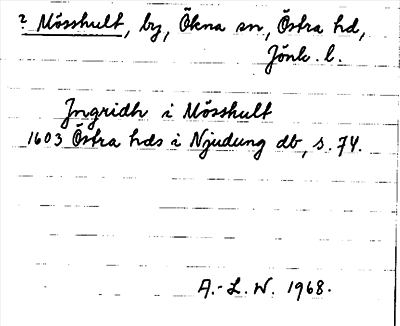 ? Mösshult, by, Ökna sn, Östra hd,
Jönk. l.
Ingridh i Mösshult
1603 Östra hds i Njudung db, s. 74.
A.-L. W. 1968.